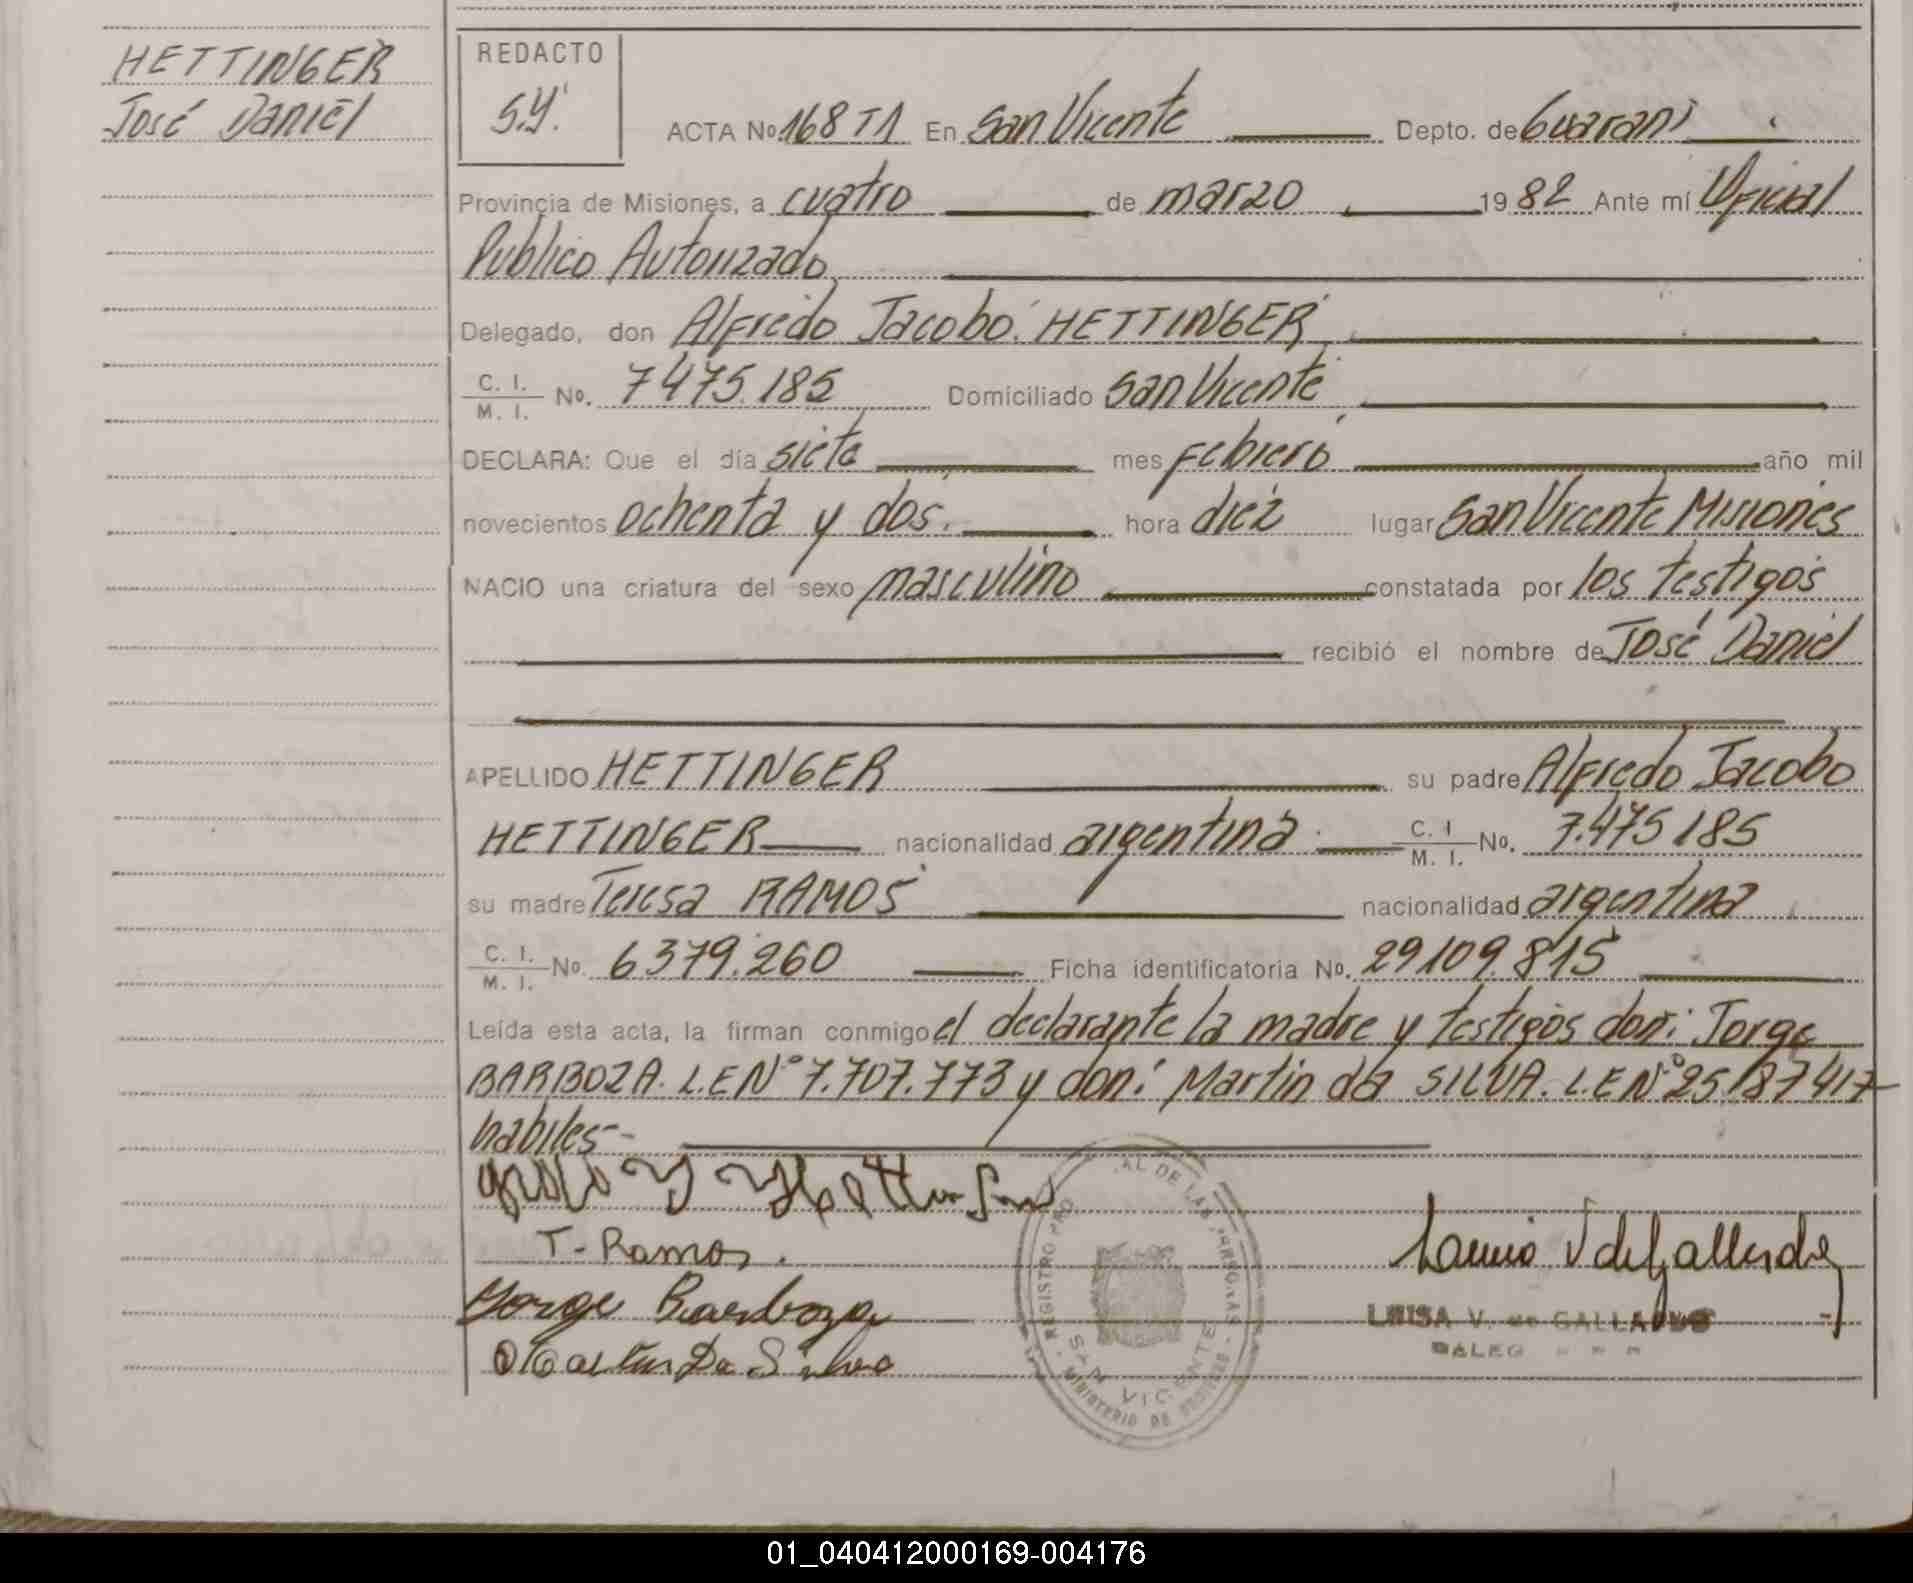 HETTINGER
José Daniel
REDACTO
S.Y.
ACTA No 168 T1 En San Vicente Depto. de Guaraní
Provincia de Misiones, a cuatro de marzo 1982 Ante mí Oficial
Publico Autorizado
Delegado, don Alfredo Jacobo HETTINGER
C. I. / M. I. No. 7475.185 Domiciliado San Vicente
DECLARA: Que el día siete mes Febrero año mil
novecientos ochenta y dos. hora diez lugar San Vicente Misiones
NACIO una criatura del sexo masculino constatada por los testigos
recibió el nombre de José Daniel
APELLIDO HETTINGER su padre Alfredo Jacobo
HETTINGER nacionalidad argentina C. I / M. I. No. 7.475185
su madre Teresa RAMOS nacionalidad argentina
C. I. / M. I. No. 6379.260 Ficha identificatoria No. 29109.815
Leída esta acta, la firman conmigo el declarante la madre y testigos don: Jorge
BARBOZA. L.E Nº 7.707.773 y don: Martin da SILVA. L.E Nº 25187417
habiles-
T- Ramos.
Jorge Barboza
Martin Da Silva
REGISTRO PRO AL DE LAS PERSONAS
SAN VICENTE
MINISTERIO DE
LUISA V. de GALLARDO
01_040412000169-004176